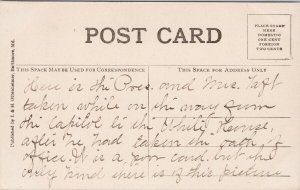 POST CARD
PLACE STAMP
HERE
DOMESTIC
ONE CENT
FOREIGN
TWO CENTS
THIS SPACE MAY BE USED FOR CORRESPONDENCE
THIS SPACE FOR ADDRESS ONLY
Published by I. & M. Ottenheimer, Baltimore, Md.
Here is the Pres. and Mrs. Taft
taken while on the way from
the Capitol to the White House,
after he had taken the oath of
office. It is a poor card, but the
only kind there is of this picture